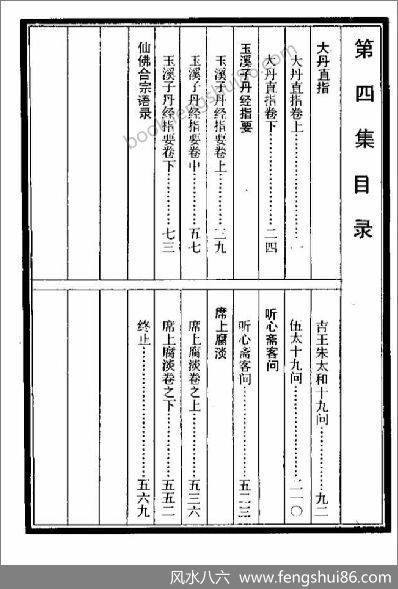 第四集目录
大丹直指
大丹直指卷上……一
大丹直指卷下……二四
玉溪子丹经指要
玉溪子丹经指要卷上……三九
玉溪子丹经指要卷中……五七
玉溪子丹经指要卷下……七三
仙佛合宗语录
吉王朱太和十九问……九二
伍太十九问……二一〇
听心斋客问
听心斋客问……五二三
席上腐淡
席上腐淡卷之上……五三六
席上腐淡卷之下……五五二
终止……五六九
风水八六：www.fengshui86.com